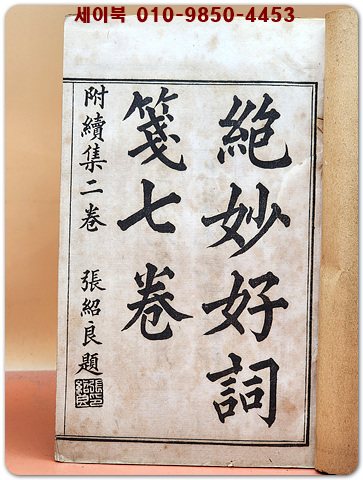 세이북 010-9850-4453
絕妙好詞
箋七卷
附續集二卷 張紹良題